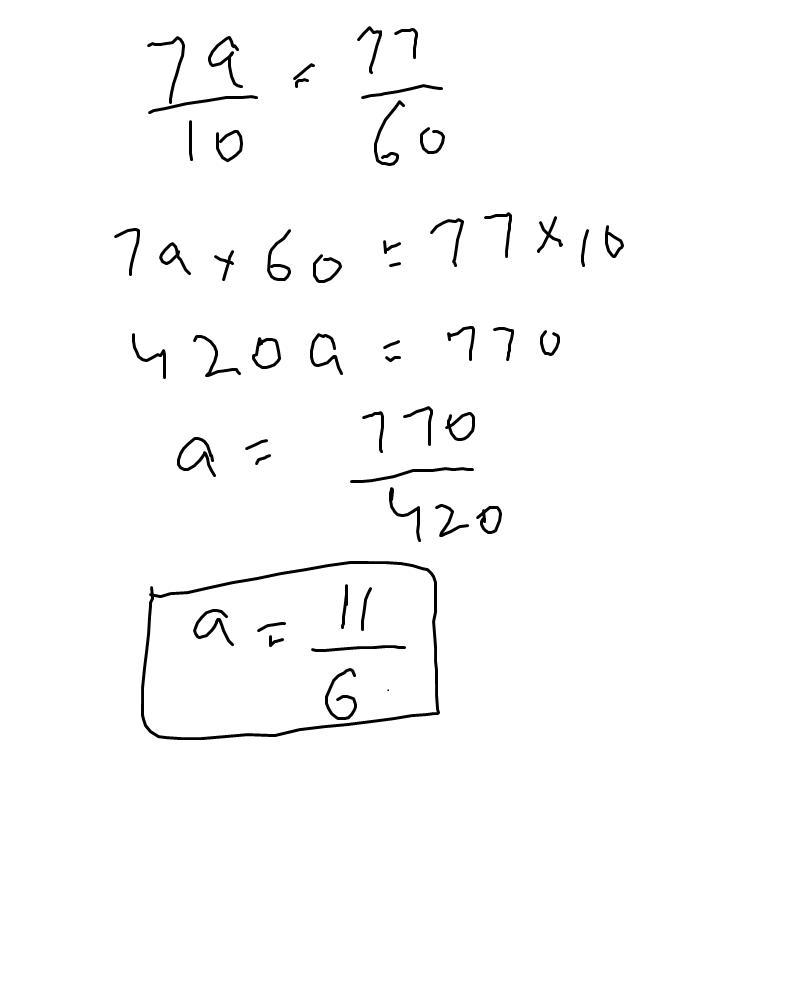 7a/10 = 77/60
7a × 60 = 77 × 10
420a = 770
a = 770/420
a = 11/6